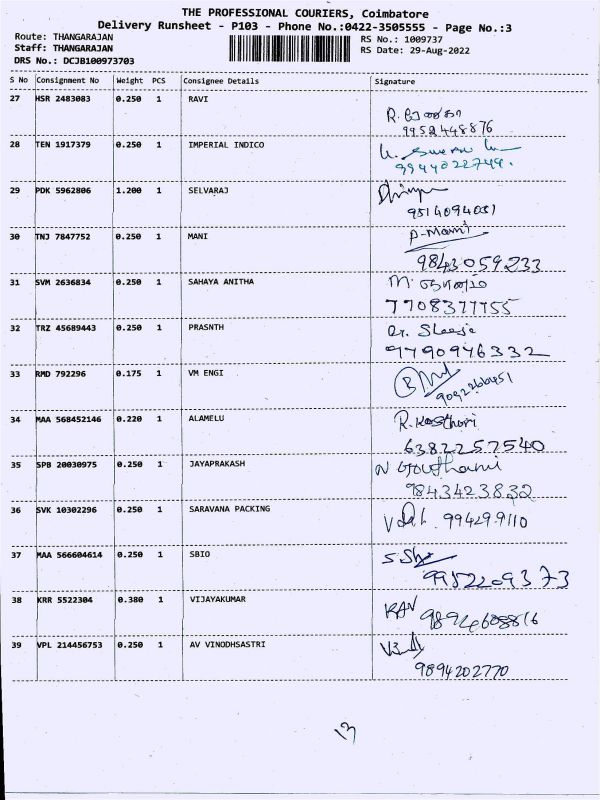 THE PROFESSIONAL COURIERS, Coimbatore
Delivery Runsheet - P103 - Phone No.:0422-3505555 - Page No.:3
Route: THANGARAJAN
RS No.: 1009737
Staff: THANGARAJAN
RS Date: 29-Aug-2022
DRS No.: DCJB100973703
S No Consignment No Weight PCS Consignee Details Signature
27 HSR 2483083 0.250 1 RAVI
9952448876
28 TEN 1917379 0.250 1 IMPERIAL INDICO
9944022749.
29 PDK 5962806 1.200 1 SELVARAJ
9514094031
30 TNJ 7847752 0.250 1 MANI P-Mani
9843059233
31 SVM 2636834 0.250 1 SAHAYA ANITHA
7708377755
32 TRZ 45689443 0.250 1 PRASNTH
9790946332
33 RMD 792296 0.175 1 VM ENGI
34 MAA 568452146 0.220 1 ALAMELU R.Kasthuri
6382257540
35 SPB 20030975 0.250 1 JAYAPRAKASH N Gouthami
9843423832
36 SVK 10302296 0.250 1 SARAVANA PACKING
37 MAA 566604614 0.250 1 SBIO
9952209373
38 KRR 5522304 0.380 1 VIJAYAKUMAR
9894608816
39 VPL 214456753 0.250 1 AV VINODHSASTRI
9894202770
13